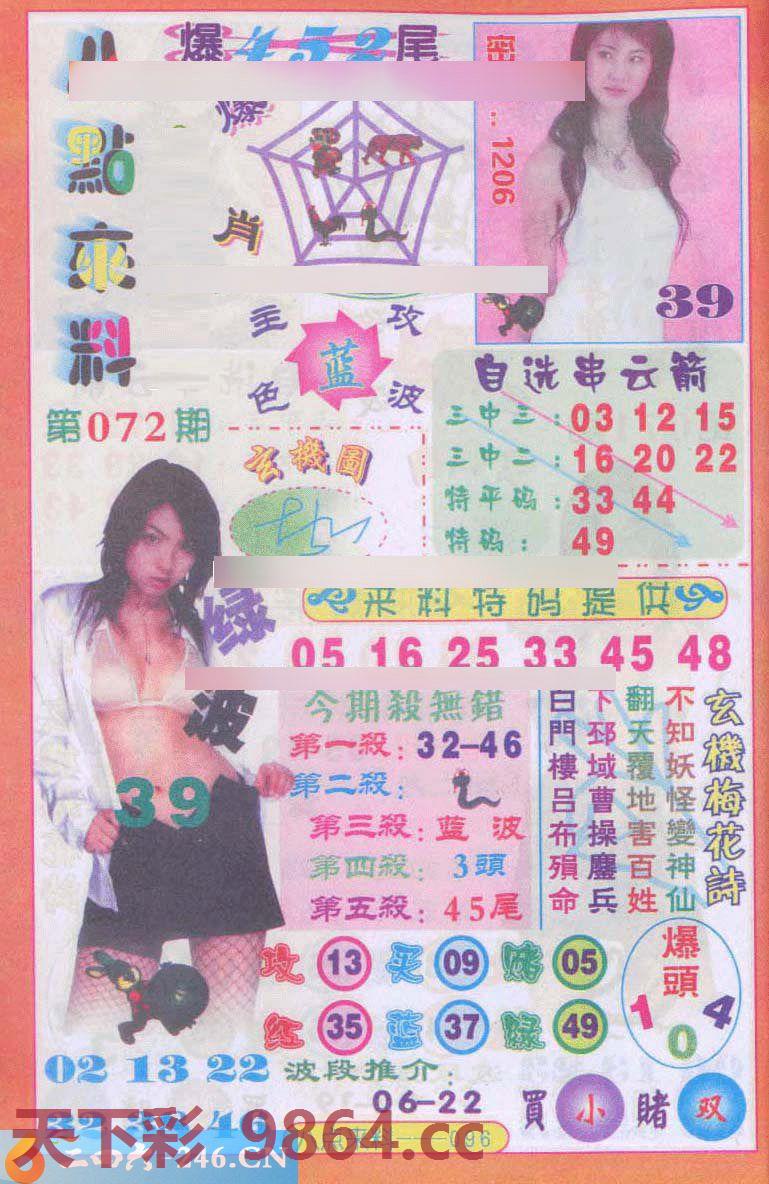 八點來料
爆452尾
爆
肖
密
1206
39
主攻
蓝
色波
自选串云箭
三中三：03 12 15
三中二：16 20 22
特平码：33 44
特码：49
第072期
玄機圖
绿波
39
来料特码提供
05 16 25 33 45 48
今期殺無錯
第一殺：32-46
第二殺：
第三殺：蓝波
第四殺：3頭
第五殺：45尾
玄機梅花詩
不知妖怪變神仙
翻天覆地害百姓
下邳域曹操鏖兵
白門樓呂布殞命
攻 13 买 09 赌 05
红 35 蓝 37 绿 49
爆頭
1 0 4
02 13 22
波段推介：
06-22
買小賭双
天下彩-9864.cc
二四六-246.CN